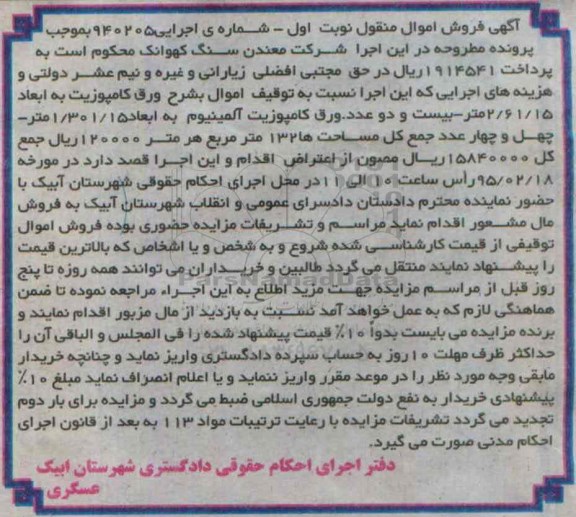 آگهی فروش اموال منقول نوبت اول - شماره ی اجرایی ۹۴۰۲۰۵بموجب
پرونده مطروحه در این اجرا شرکت معدن سنگ کهوانک محکوم است به
پرداخت ۱۹۱۴۵۴۱ریال در حق مجتبی افضلی زیارانی و غیره و نیم عشر دولتی و
هزینه های اجرایی که این اجرا نسبت به توقیف اموال بشرح ورق کامپوزیت به ابعاد
۲/۶۱/۱۵متر-بیست و دو عدد.ورق کامپوزیت آلمینیوم به ابعاد۱/۳۰۱/۱۵متر-
چهل و چهار عدد جمع کل مساحت ها۱۳۲ متر مربع هر متر ۱۲۰۰۰۰ریال جمع
کل ۱۵۸۴۰۰۰۰ریال مصون از اعتراض اقدام و این اجرا قصد دارد در مورخه
۹۵/۰۲/۱۸رأس ساعت ۱۰ الی ۱۱در محل اجرای احکام حقوقی شهرستان آبیک با
حضور نماینده محترم دادستان دادسرای عمومی و انقلاب شهرستان آبیک به فروش
مال مشعور اقدام نماید مراسم و تشریفات مزایده حضوری بوده فروش اموال
توقیفی از قیمت کارشناسی شده شروع و به شخص و یا اشخاص که بالاترین قیمت
را پیشنهاد نمایند منتقل می گردد طالبین و خریداران می توانند همه روزه تا پنج
روز قبل از مراسم مزایده جهت مزید اطلاع به این اجراء مراجعه نموده تا ضمن
هماهنگی لازم که به عمل خواهد آمد نسبت به بازدید از مال مزبور اقدام نمایند و
برنده مزایده می بایست بدواً ۱۰٪ قیمت پیشنهاد شده را فی المجلس و الباقی آن را
حداکثر ظرف مهلت ۱۰روز به حساب سپرده دادگستری واریز نماید و چنانچه خریدار
مابقی وجه مورد نظر را در موعد مقرر واریز ننماید و یا اعلام انصراف نماید مبلغ ۱۰٪
پیشنهادی خریدار به نفع دولت جمهوری اسلامی ضبط می گردد و مزایده برای بار دوم
تجدید می گردد تشریفات مزایده با رعایت ترتیبات مواد ۱۱۳ به بعد از قانون اجرای
احکام مدنی صورت می گیرد.
دفتر اجرای احکام حقوقی دادگستری شهرستان آبیک
عسگری
ParsNamadData